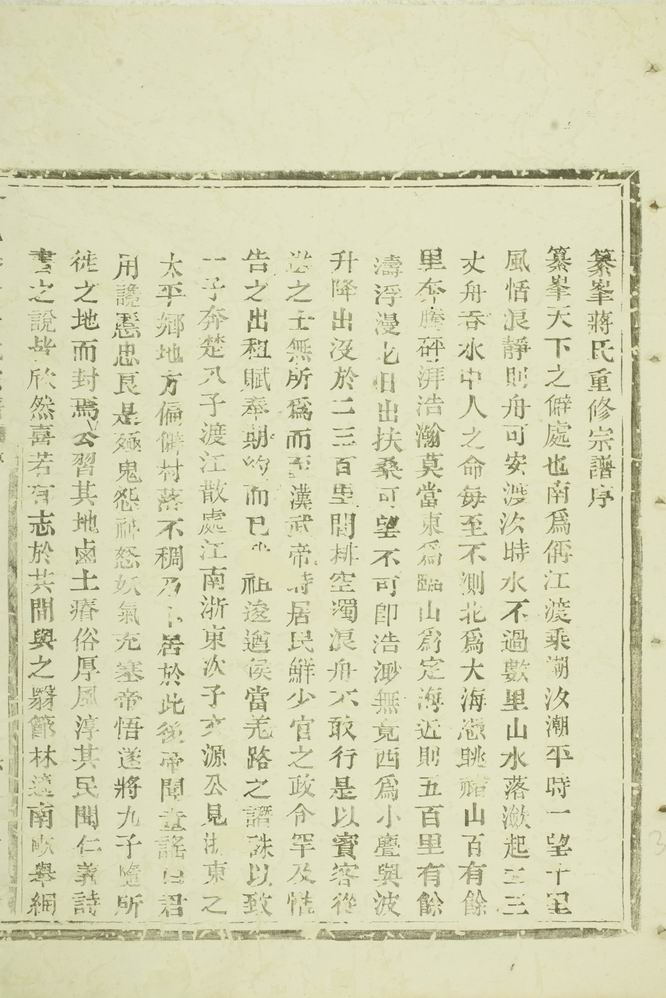 纂峯蔣氏重修宗譜序
纂峯天下之僻處也南爲俩江渡乘潮汐潮平時一望十里
風恬浪靜則舟可安渡汐時水不過數里山水落潋起二三
丈舟吞水中人之命每至不測北爲大海憑眺山百有餘
里奔騰砰湃浩瀚莫當東爲臨山爲定海近則五百里有餘
濤浮漫北日出扶桑可望不可卽浩渺無竟西爲小亹與波
升降出沒於二三百里間排空濁浪舟不敢行是以賓客從
遊之士無所爲而至漢武帝時居民鮮少官之政令罕及惟
告之出租賦奉期約而已 祖逡遒侯當羌路之譖誅以致
一子奔楚八子渡江散處江南浙東次子文源公見浙東之
太平鄉地方偏僻村落不稠乃卜居於此後帝聞童謠曰君
用讒慝忠良是殛鬼怨神怒妖氣充塞帝悟遂將九子隨所
徙之地而封焉公習其地鹵土瘠俗厚風淳其民聞仁義詩
書之說皆欣然喜若有志於其間與之翳節林遠南畝舉網